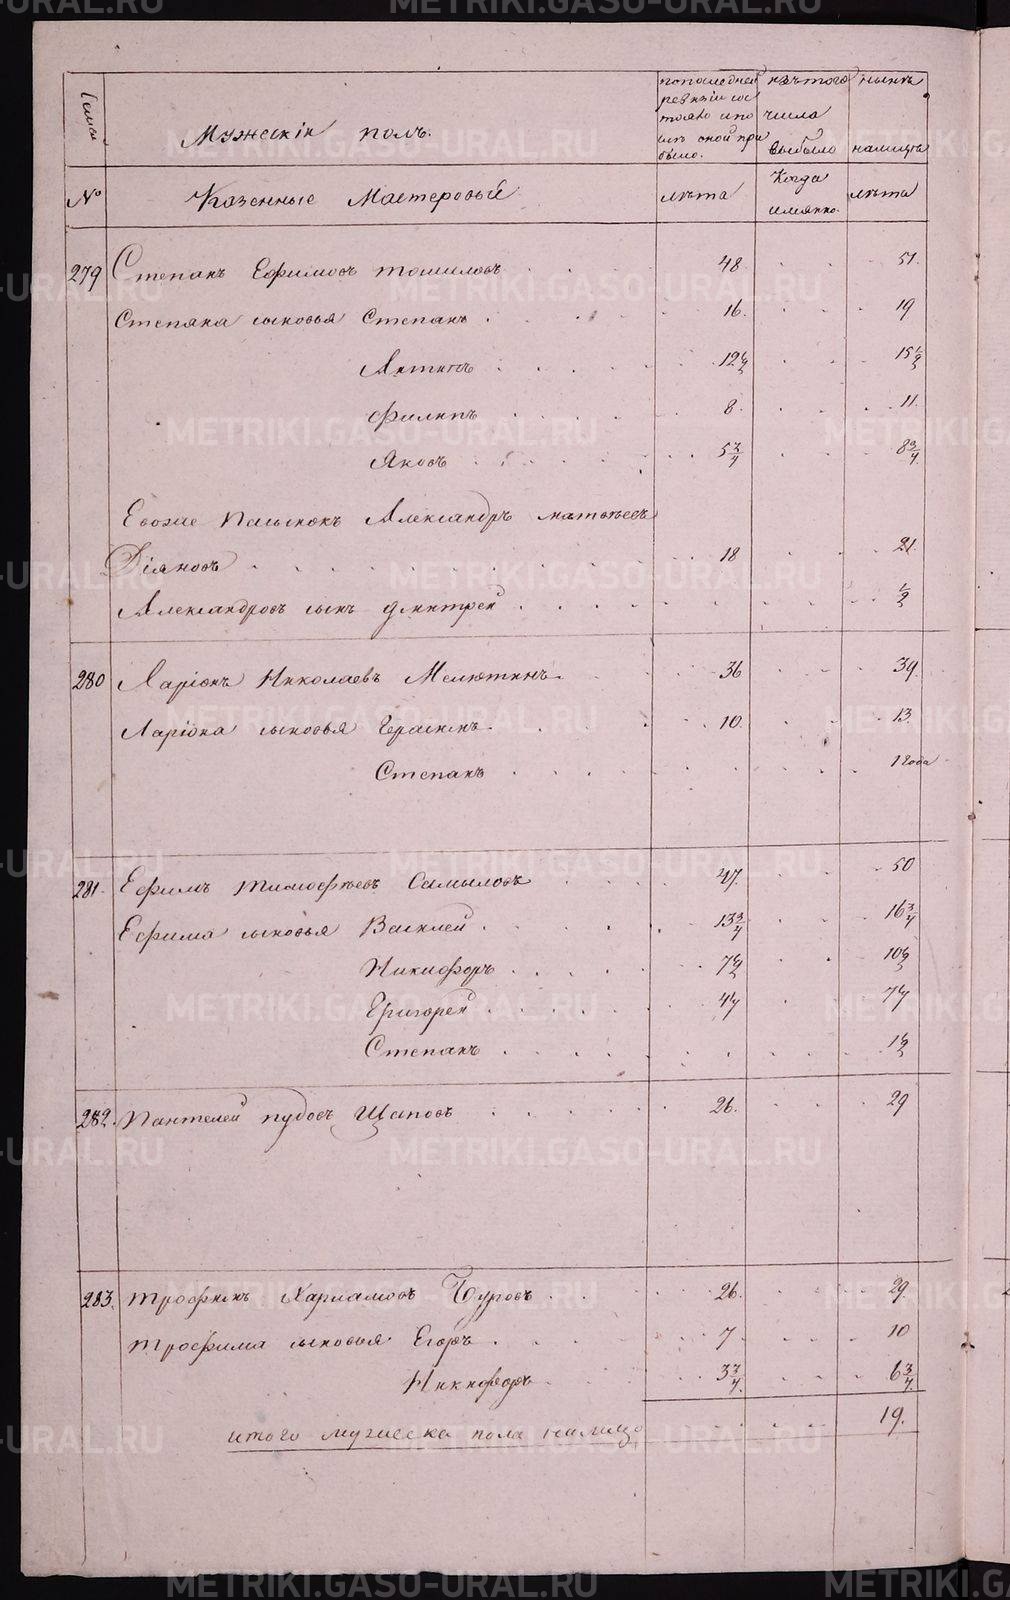 Семьи
Мужескiй полъ.
по последней ревизiи сос тояло и по слѣ оной при было.
изъ того числа выбыло
нынѣ налицѣ
№
Казенные Мастеровыѣ
лѣта
Когда имянно.
лѣта
279 Степанъ Ефимовъ Томиловъ 48 51.
Степана сыновья Степанъ 16. 19
Антипъ 12 1/2 15 1/2
Филипъ 8. 11.
Яковъ 5 3/4 8 3/4
Евоже Пасынокъ Александръ Матвѣевъ
Дiяновъ 18 21.
Александровъ сынъ Дмитрей 1/2
280 Ларiонъ Николаевъ Мелютинъ 36 39.
Ларiона сыновья Герасимъ 10. 13.
Степанъ 1 года
281. Ефимъ Тимофѣевъ Самыловъ 47. 50
Ефима сыновья Василей 13 3/4 16 3/4
Никифоръ 7 1/2 10 1/2
Григорей
Степанъ 1 1/2
282. Пантелей Пудовъ Щаповъ 26. 29
283. Трофимъ Харламовъ Буровъ 26. 29.
Трофима сыновья Егоръ 7 10
Никифоръ 3 3/4 6 3/4
итого мужеска пола налицо 19.
METRIKI.GASO-URAL.RU